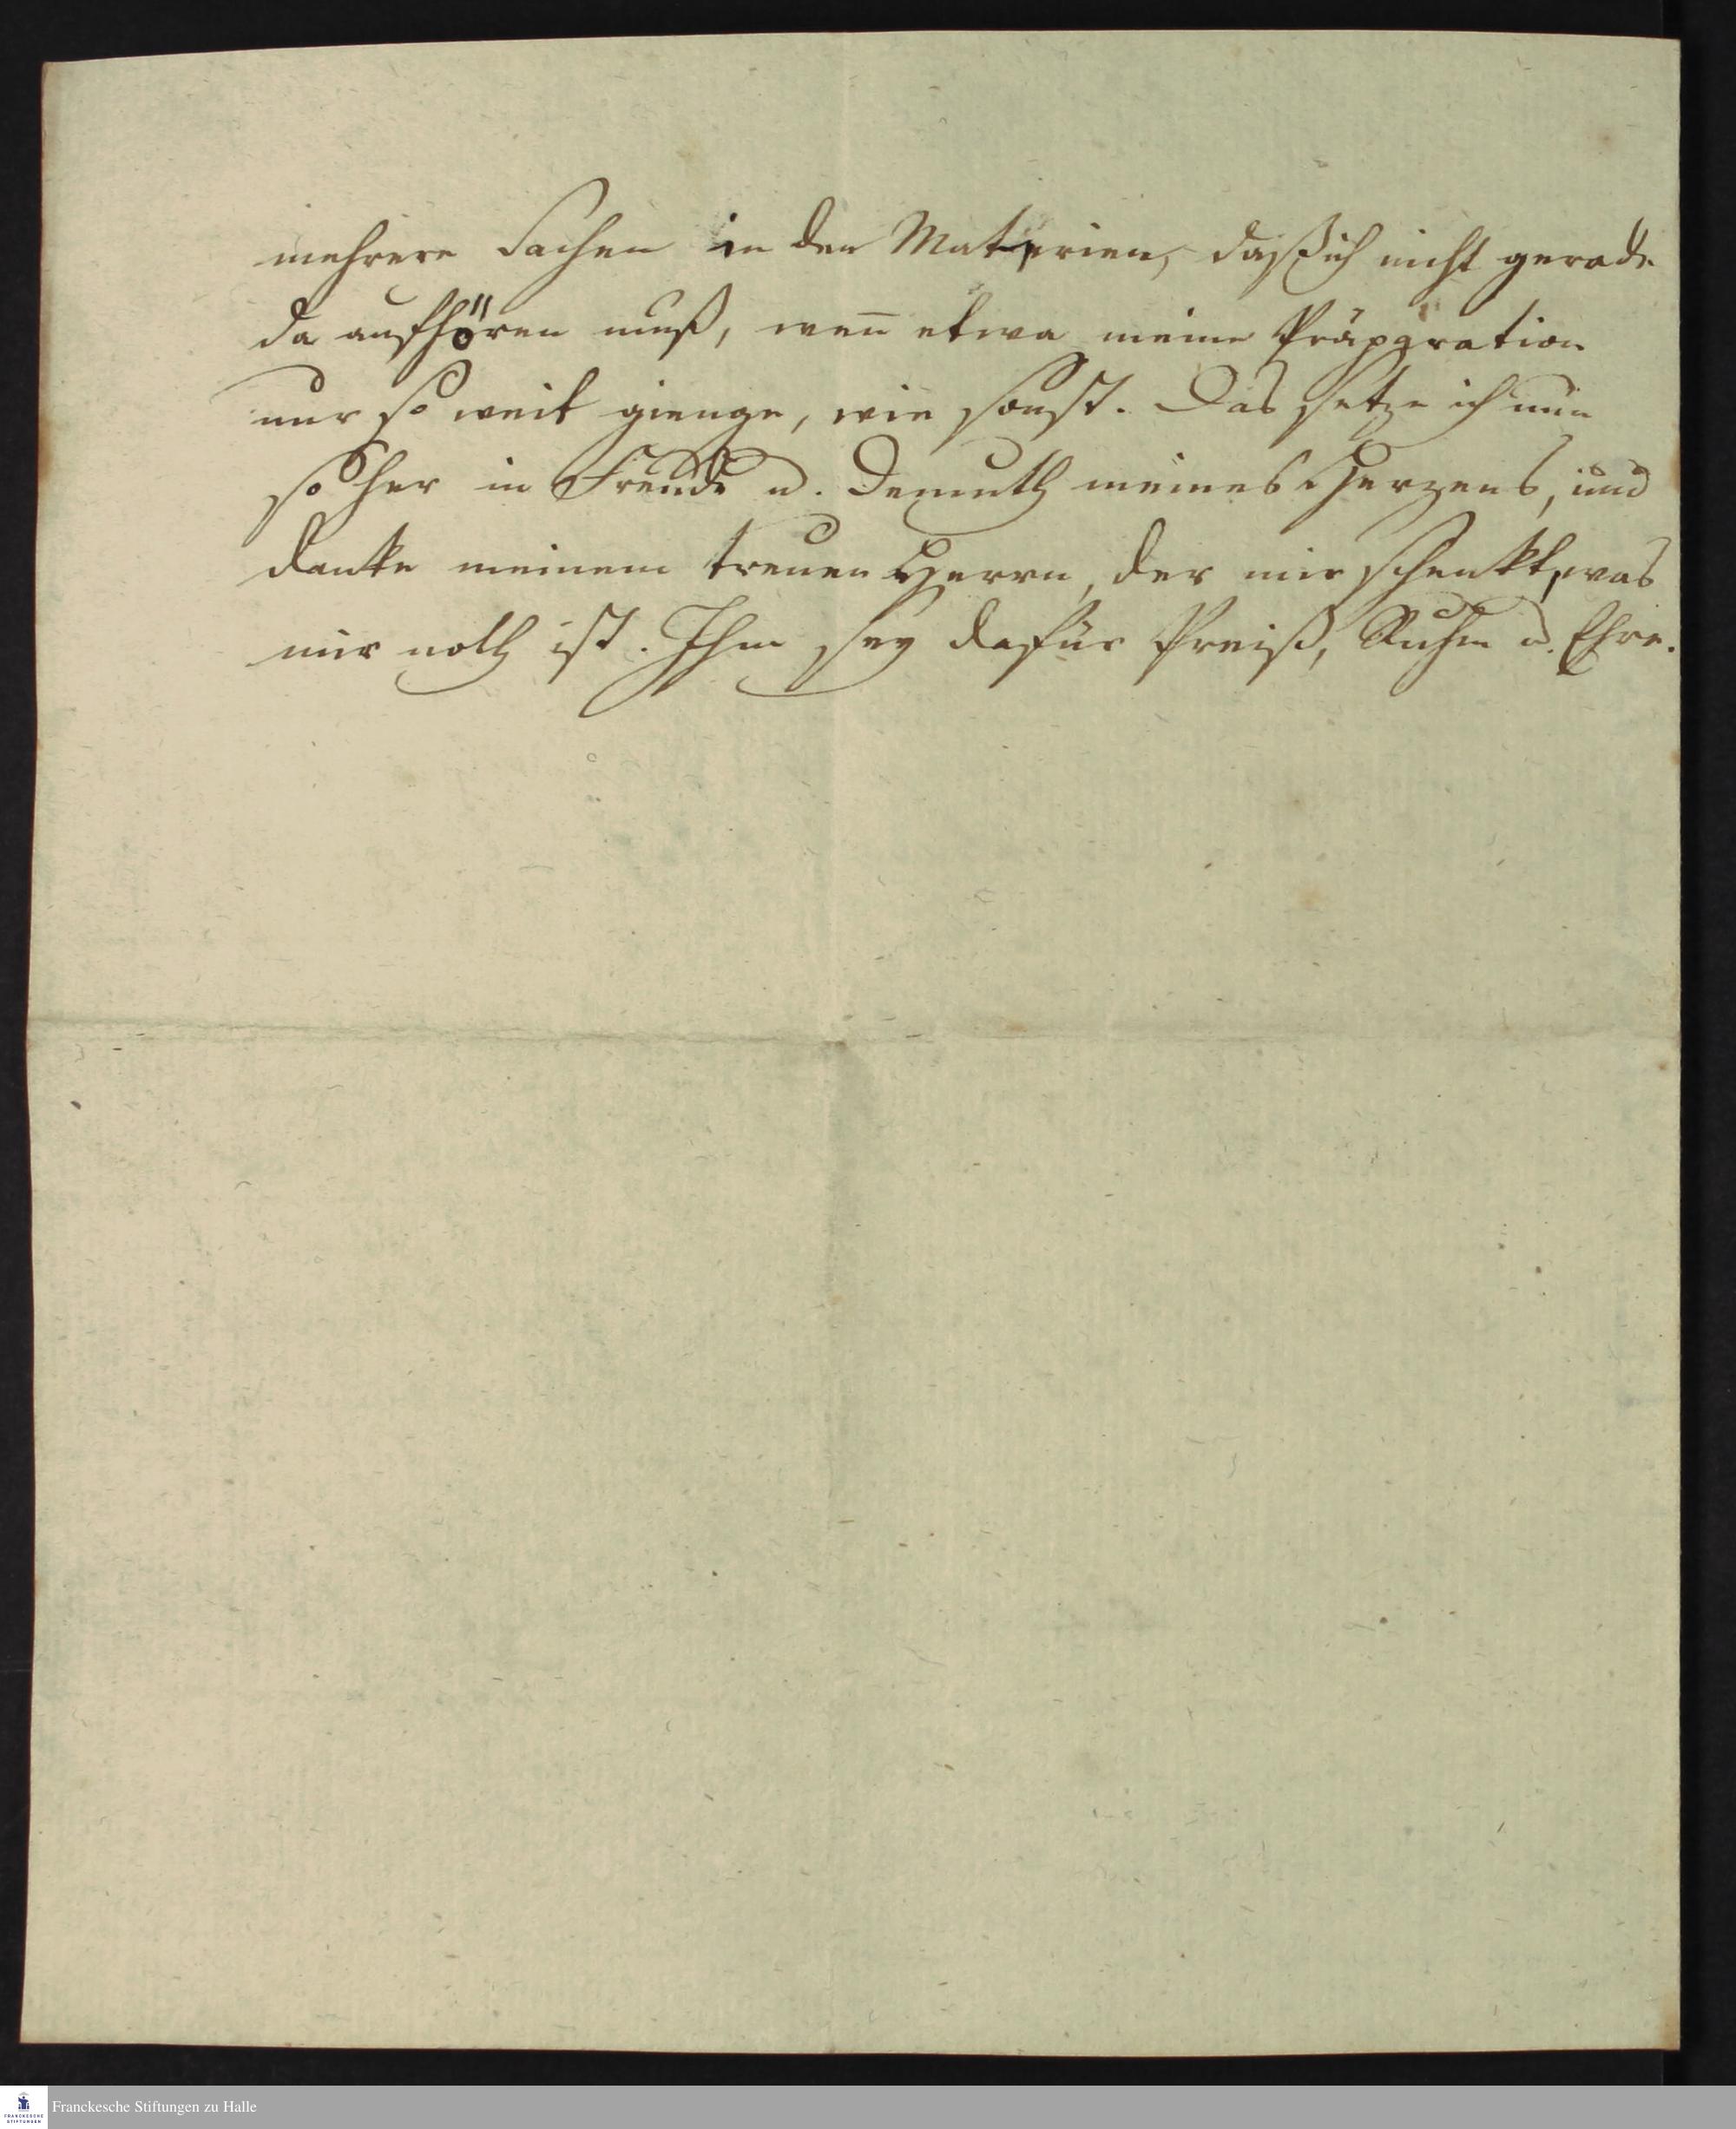 mehrere Sachen in den Materien, daß ich nicht gerade
da aufhören muß, wen̅ etwa meine Präparation
nur so weit gienge, wie sonst. Das setze ich nun
so her in Freude u. Demuth meines Herzens, und
danke meinem treuen Herrn, der mir schenkt, was
mir noth ist. Ihm sey dafür Preiß, Ruhm u. Ehre.
FRANCKESCHE
STIFTUNGEN
Franckesche Stiftungen zu Halle